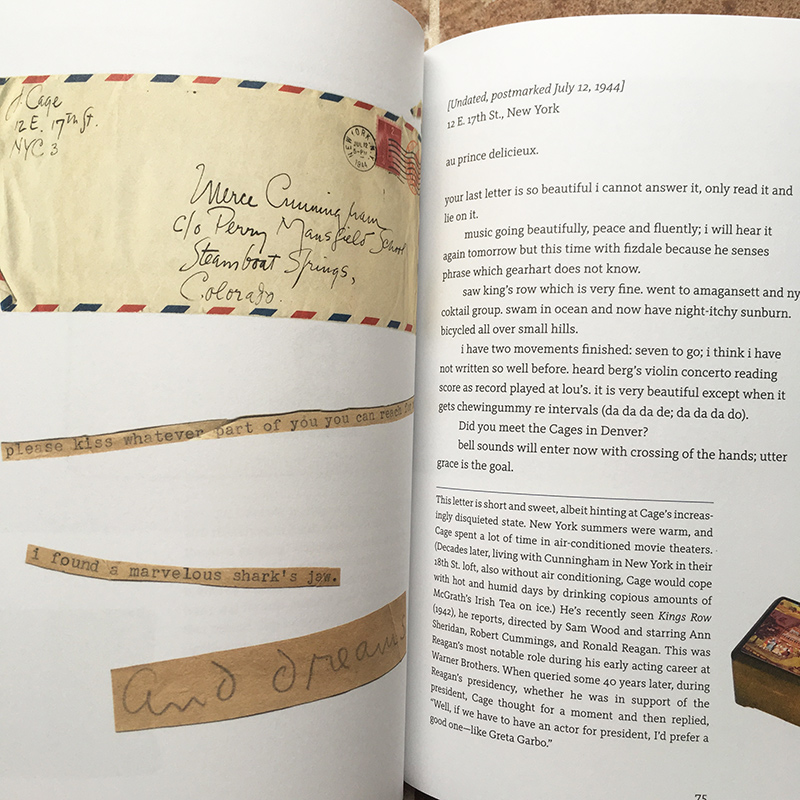 J. Cage
12 E. 17th St.
NYC 3
NEW YORK, N.Y.
JUL 12
1944
Merce Cunningham
c/o Perry Mansfield School
Steamboat Springs,
Colorado.
please kiss whatever part of you you can reach
i found a marvelous shark's jaw.
and dreams
[Undated, postmarked July 12, 1944]
12 E. 17th St., New York
au prince delicieux.
your last letter is so beautiful i cannot answer it, only read it and
lie on it.
music going beautifully, peace and fluently; i will hear it
again tomorrow but this time with fizdale because he senses
phrase which gearhart does not know.
saw king's row which is very fine. went to amagansett and ny
coktail group. swam in ocean and now have night-itchy sunburn.
bicycled all over small hills.
i have two movements finished: seven to go; i think i have
not written so well before. heard berg's violin concerto reading
score as record played at lou's. it is very beautiful except when it
gets chewingummy re intervals (da da da de; da da da do).
Did you meet the Cages in Denver?
bell sounds will enter now with crossing of the hands; utter
grace is the goal.
This letter is short and sweet, albeit hinting at Cage's increas-
ingly disquieted state. New York summers were warm, and
Cage spent a lot of time in air-conditioned movie theaters.
(Decades later, living with Cunningham in New York in their
18th St. loft, also without air conditioning, Cage would cope
with hot and humid days by drinking copious amounts of
McGrath's Irish Tea on ice.) He's recently seen Kings Row
(1942), he reports, directed by Sam Wood and starring Ann
Sheridan, Robert Cummings, and Ronald Reagan. This was
Reagan's most notable role during his early acting career at
Warner Brothers. When queried some 40 years later, during
Reagan's presidency, whether he was in support of the
president, Cage thought for a moment and then replied,
"Well, if we have to have an actor for president, I'd prefer a
good one—like Greta Garbo."
75